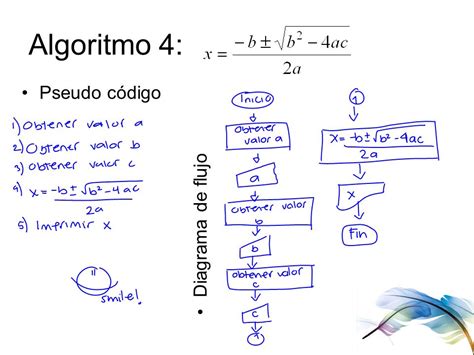 Algoritmo 4:
x = −b ± √b² − 4ac / 2a
• Pseudo código
1) Obtener valor a
2) Obtener valor b
3) Obtener valor c
4) x = −b ± √b² − 4ac / 2a
5) Imprimir x
smile!
• Diagrama de flujo
Inicio
Obtener
valor a
a
Obtener valor
b
b
obtener valor
c
c
1
1
x = −b ± √b² − 4ac / 2a
x
Fin